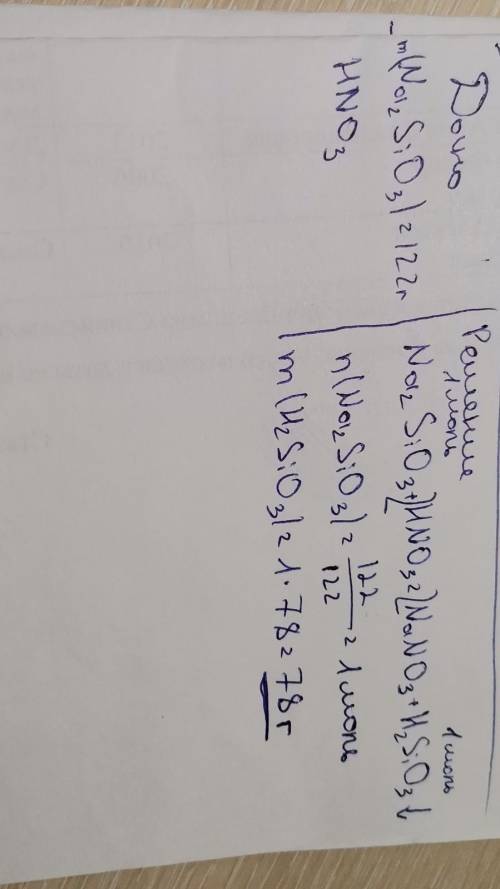 Дано
m(Na₂SiO₃)=122г
HNO₃
Решение
1моль 1моль
Na₂SiO₃+2HNO₃=2NaNO₃+H₂SiO₃↓
n(Na₂SiO₃)=122/122=1моль
m(H₂SiO₃)=1·78=78г